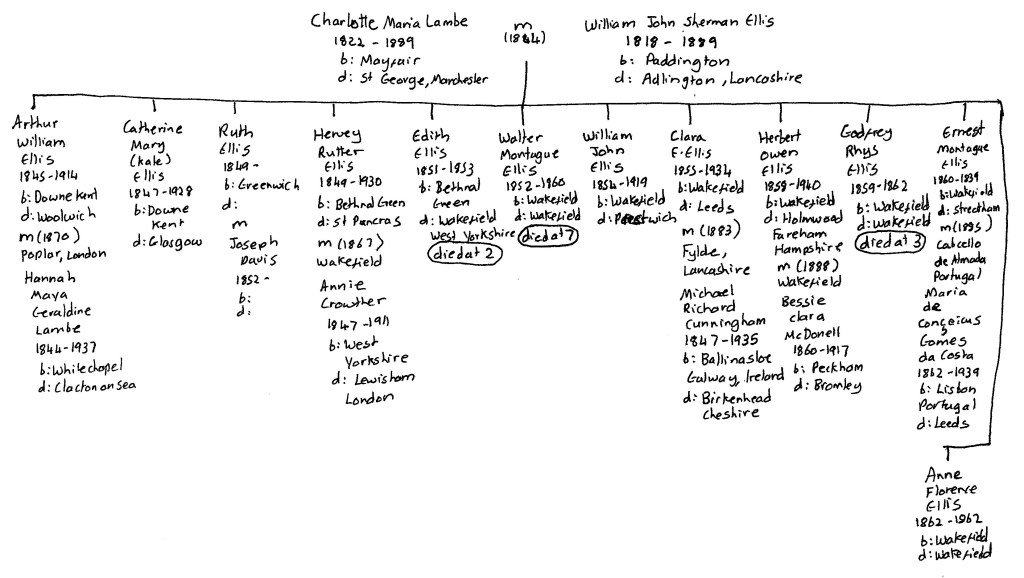 Charlotte Maria Lambe
1822 - 1889
b: Mayfair
d: St George, Manchester
m
(1844)
William John Sherman Ellis
1818 - 1889
b: Paddington
d: Adlington, Lancashire
Arthur
William
Ellis
1845-1914
b: Downe Kent
d: Woolwich
m (1870)
Poplar, London
Hannah
Maya
Geraldine
Lambe
1844-1937
b: Whitechapel
d: Clacton on sea
Catherine
Mary
(Kate)
Ellis
1847-1928
b: Downe
Kent
d: Glasgow
Ruth
Ellis
1849-
b: Greenwich
d:
m
Joseph
Davis
1852-
b:
d:
Hervey
Rutter
Ellis
1849-1930
b: Bethnal Green
d: St Pancras
m (1867)
Wakefield
Annie
Crowther
1847-1911
b: West
Yorkshire
d: Lewisham
London
Edith
Ellis
1851-1853
b: Bethnal
Green
d: Wakefield
West Yorkshire
died at 2
Walter
Montague
Ellis
1852-1860
b: Wakefield
d: Wakefield
died at 7
William
John
Ellis
1854-1919
b: Wakefield
d: Prestwich
Clara
E. Ellis
1855-1934
b: Wakefield
d: Leeds
m (1883)
Fylde,
Lancashire
Michael
Richard
Cunningham
1847-1935
b: Ballinasloe
Galway, Ireland
d: Birkenhead
Cheshire
Herbert
Owen
Ellis
1858-1940
b: Wakefield
d: Holmwood
Fareham
Hampshire
m (1888)
Wakefield
Bessie
Clara
McDonell
1860-1917
b: Peckham
d: Bromley
Godfrey
Rhys
Ellis
1859-1862
b: Wakefield
d: Wakefield
died at 3
Ernest
Montague
Ellis
b: Wakefield
d: Streatham
m (1895)
Cabcello
de Almada
Portugal
Maria
de
Conçeicus
Gomes
da Costa
1862-1939
b: Lisbon
Portugal
d: Leeds
Anne
Florence
Ellis
1862-1862
b: Wakefield
d: Wakefield